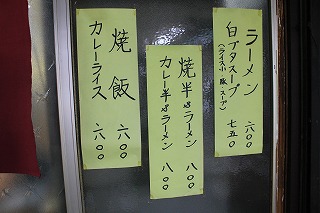 ラーメン 六〇〇
白ブタスープ 七五〇
(ライス小 豚スープ)
焼半 ラーメン 八〇〇
カレー半 ラーメン 八〇〇
焼飯 六〇〇
カレーライス 六〇〇